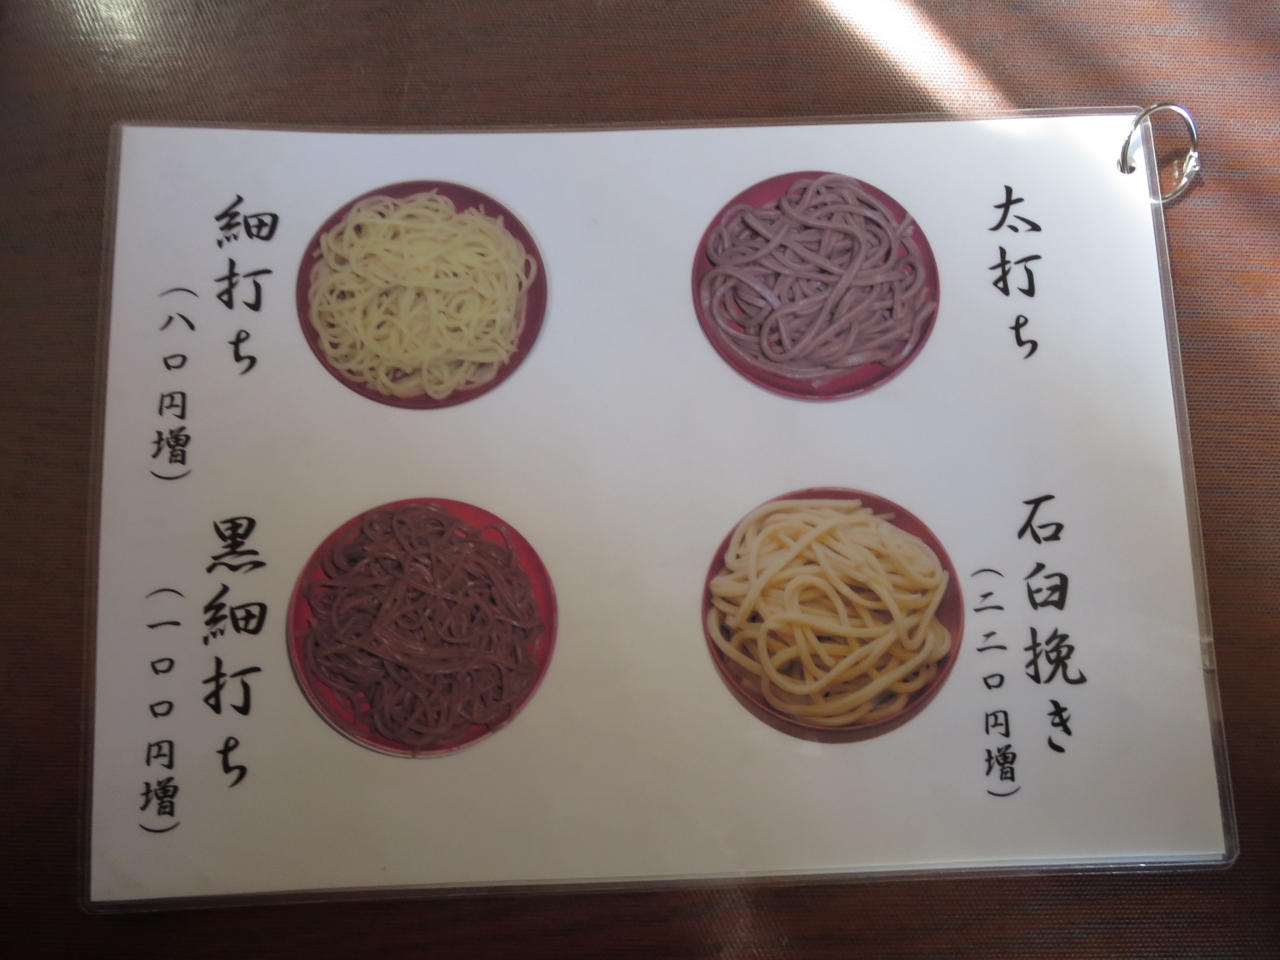 太打ち
石臼挽き
（二二〇円増）
細打ち
（八〇円増）
黒細打ち
（一〇〇円増）